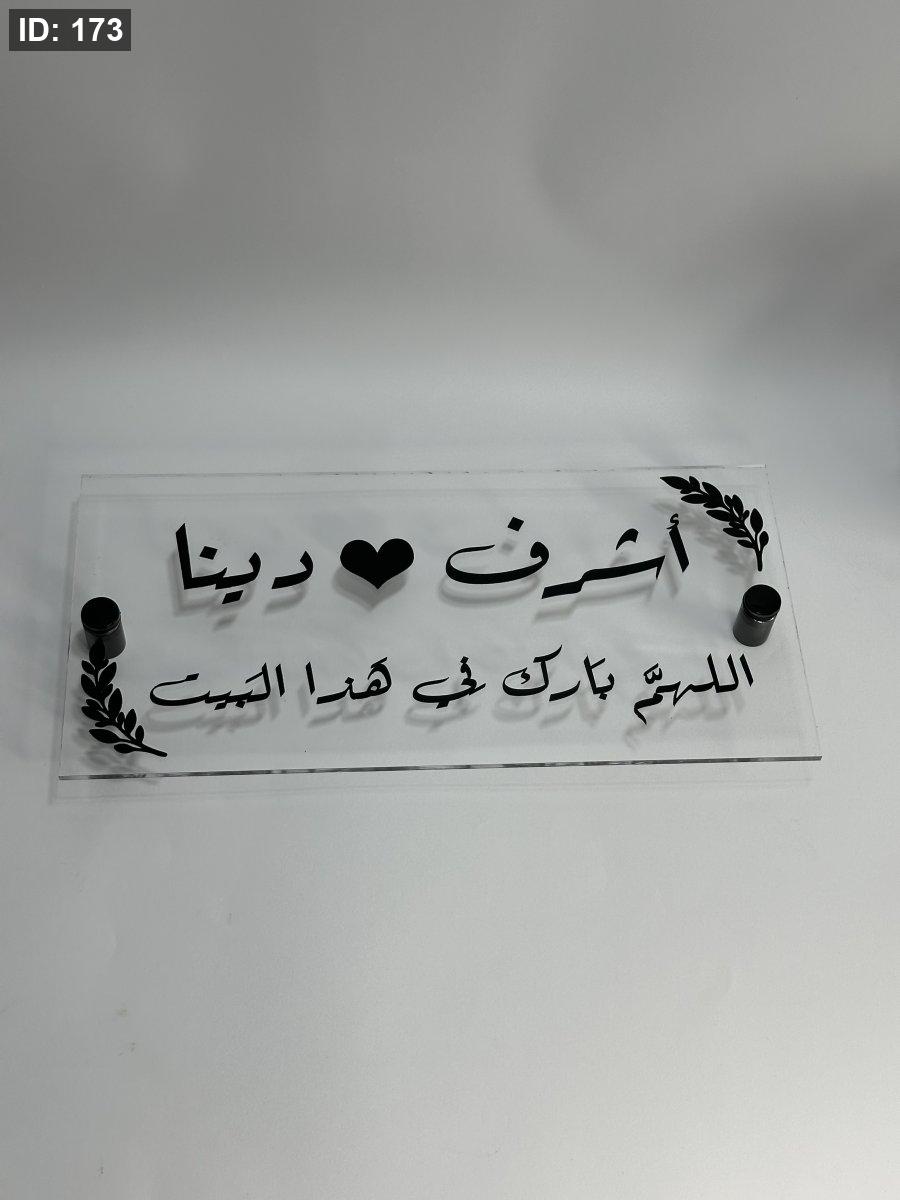 ID: 173
أشرف ♥ دينا
اللهمَّ بَارك في هَذا البَيت